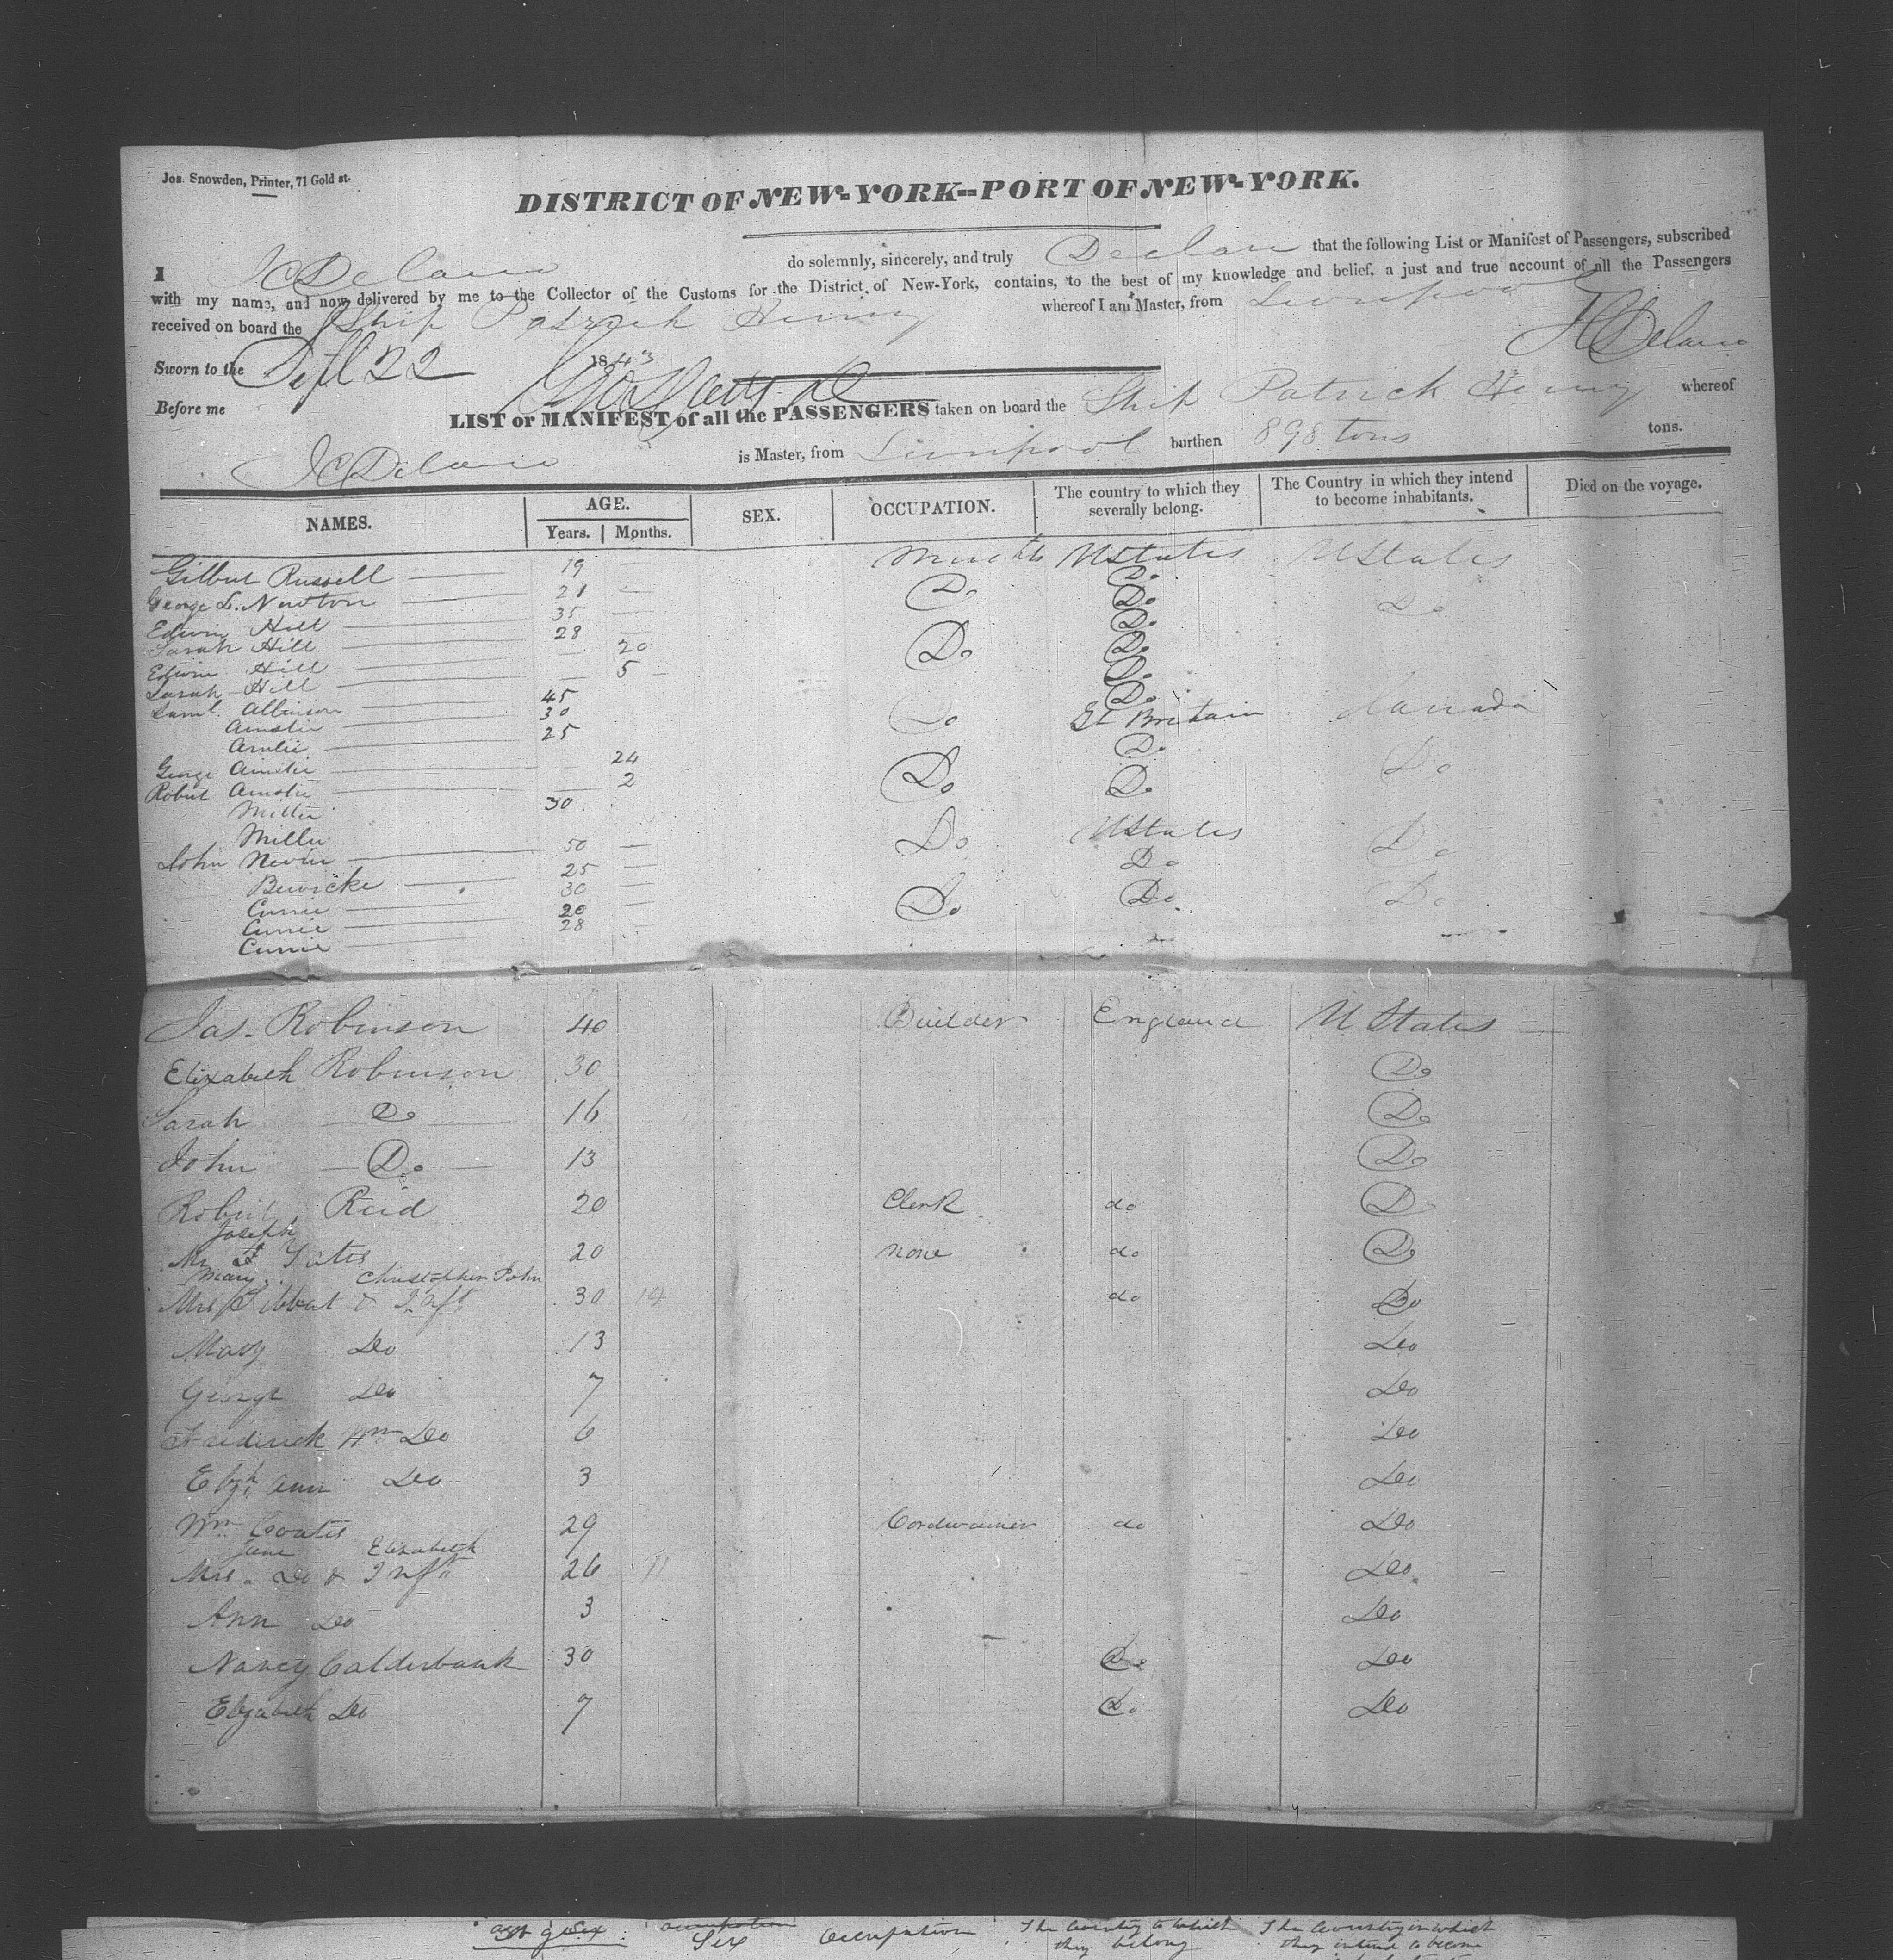 Jos. Snowden, Printer, 71 Gold st.
DISTRICT OF NEW-YORK--PORT OF NEW-YORK.
I J C Delano do solemnly, sincerely, and truly Declare that the following List or Manifest of Passengers, subscribed
with my name, and now delivered by me to the Collector of the Customs for the District of New-York, contains, to the best of my knowledge and belief, a just and true account of all the Passengers
received on board the Ship Patrick Henry whereof I am Master, from Liverpool
J C Delano
Sworn to the Sept 22 1843
Before me
LIST or MANIFEST of all the PASSENGERS taken on board the Ship Patrick Henry whereof
J C Delano is Master, from Liverpool burthen 898 tons tons.
NAMES. AGE. Years. Months. SEX. OCCUPATION. The country to which they severally belong. The Country in which they intend to become inhabitants. Died on the voyage.
Gilbert Russell 19 UStates UStates
George L. Newton 21 Do Do Do
Edwin Hill 35 Do
Sarah Hill 28 Do
Edwin Hill 20 Do Do
Sarah Hill 5 Do
Saml. Allinson 45 Do
Ainslie 30 Do Gt Britain Canada
Ainslie 25 Do
George Ainslie 24 Do Do
Robert Ainslie 2 Do
Miller 30
Miller Do UStates Do
John Nevin 50 Do
Bewicke 25 Do
Currie 30 Do Do
Currie 20
Currie 28
Jas. Robinson 40 Builder England U States
Elizabeth Robinson 30 Do
Sarah Do 16 Do
John Do 13 Do
Robert Reid 20 Clerk do Do
Joseph
Mr Yates 20 none do Do
Mary Christopher John
Mrs Tibbat & Inft 30 14 do Do
Mary Do 13 Do
George Do 7 Do
Frederick Wm Do 6 Do
Elizh Ann Do 3 Do
Wm Coates 29 Cordwainer do Do
Jane Elizabeth
Mrs Do & Inft 26 11 Do
Ann Do 3 Do
Nancy Calderbank 30 Do Do
Elizabeth Do 7 Do Do
age Sex occupation Sex Occupation The Country to which they belong The Country in which they intend to become